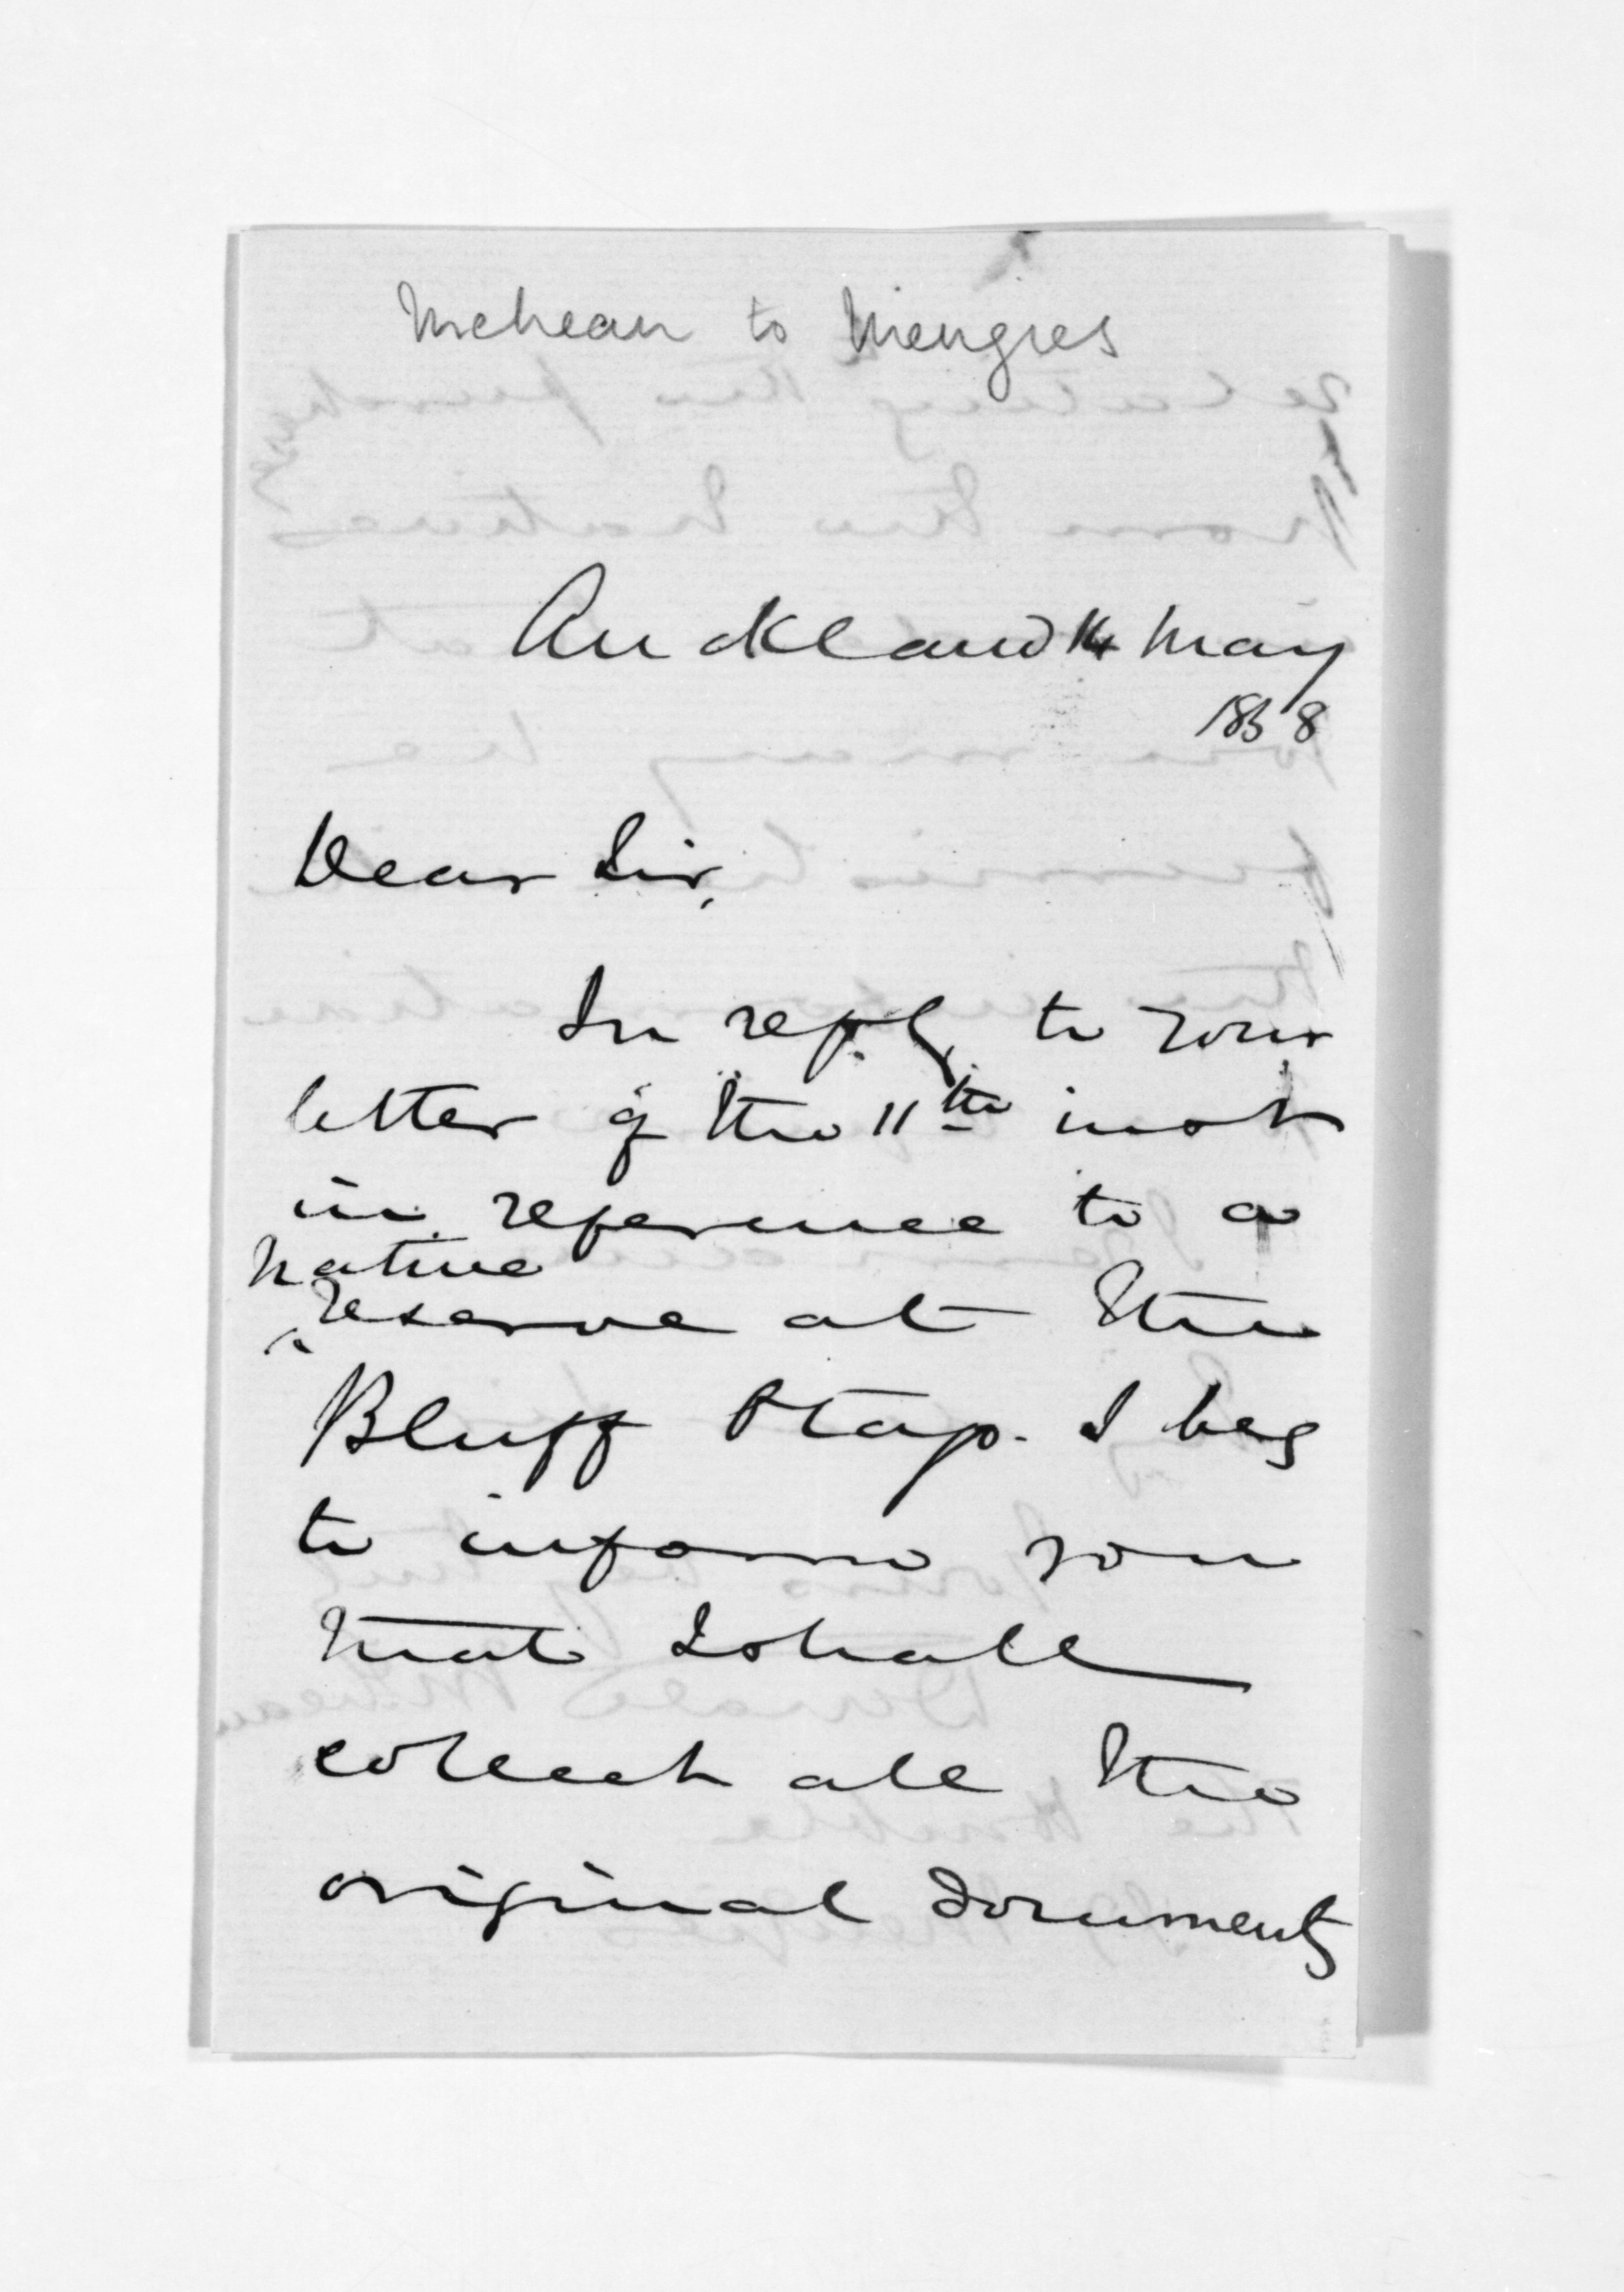 McLean to Menzies
Auckland 14 May
1858
Dear Sir,
In reply to your
letter of the 11th inst
in reference to a
Native
reserve at the
Bluff I beg
to inform you
that I shall
collect all the
original documents